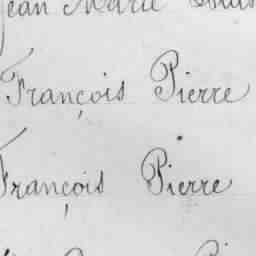 Jean Marie
François Pierre
François Pierre